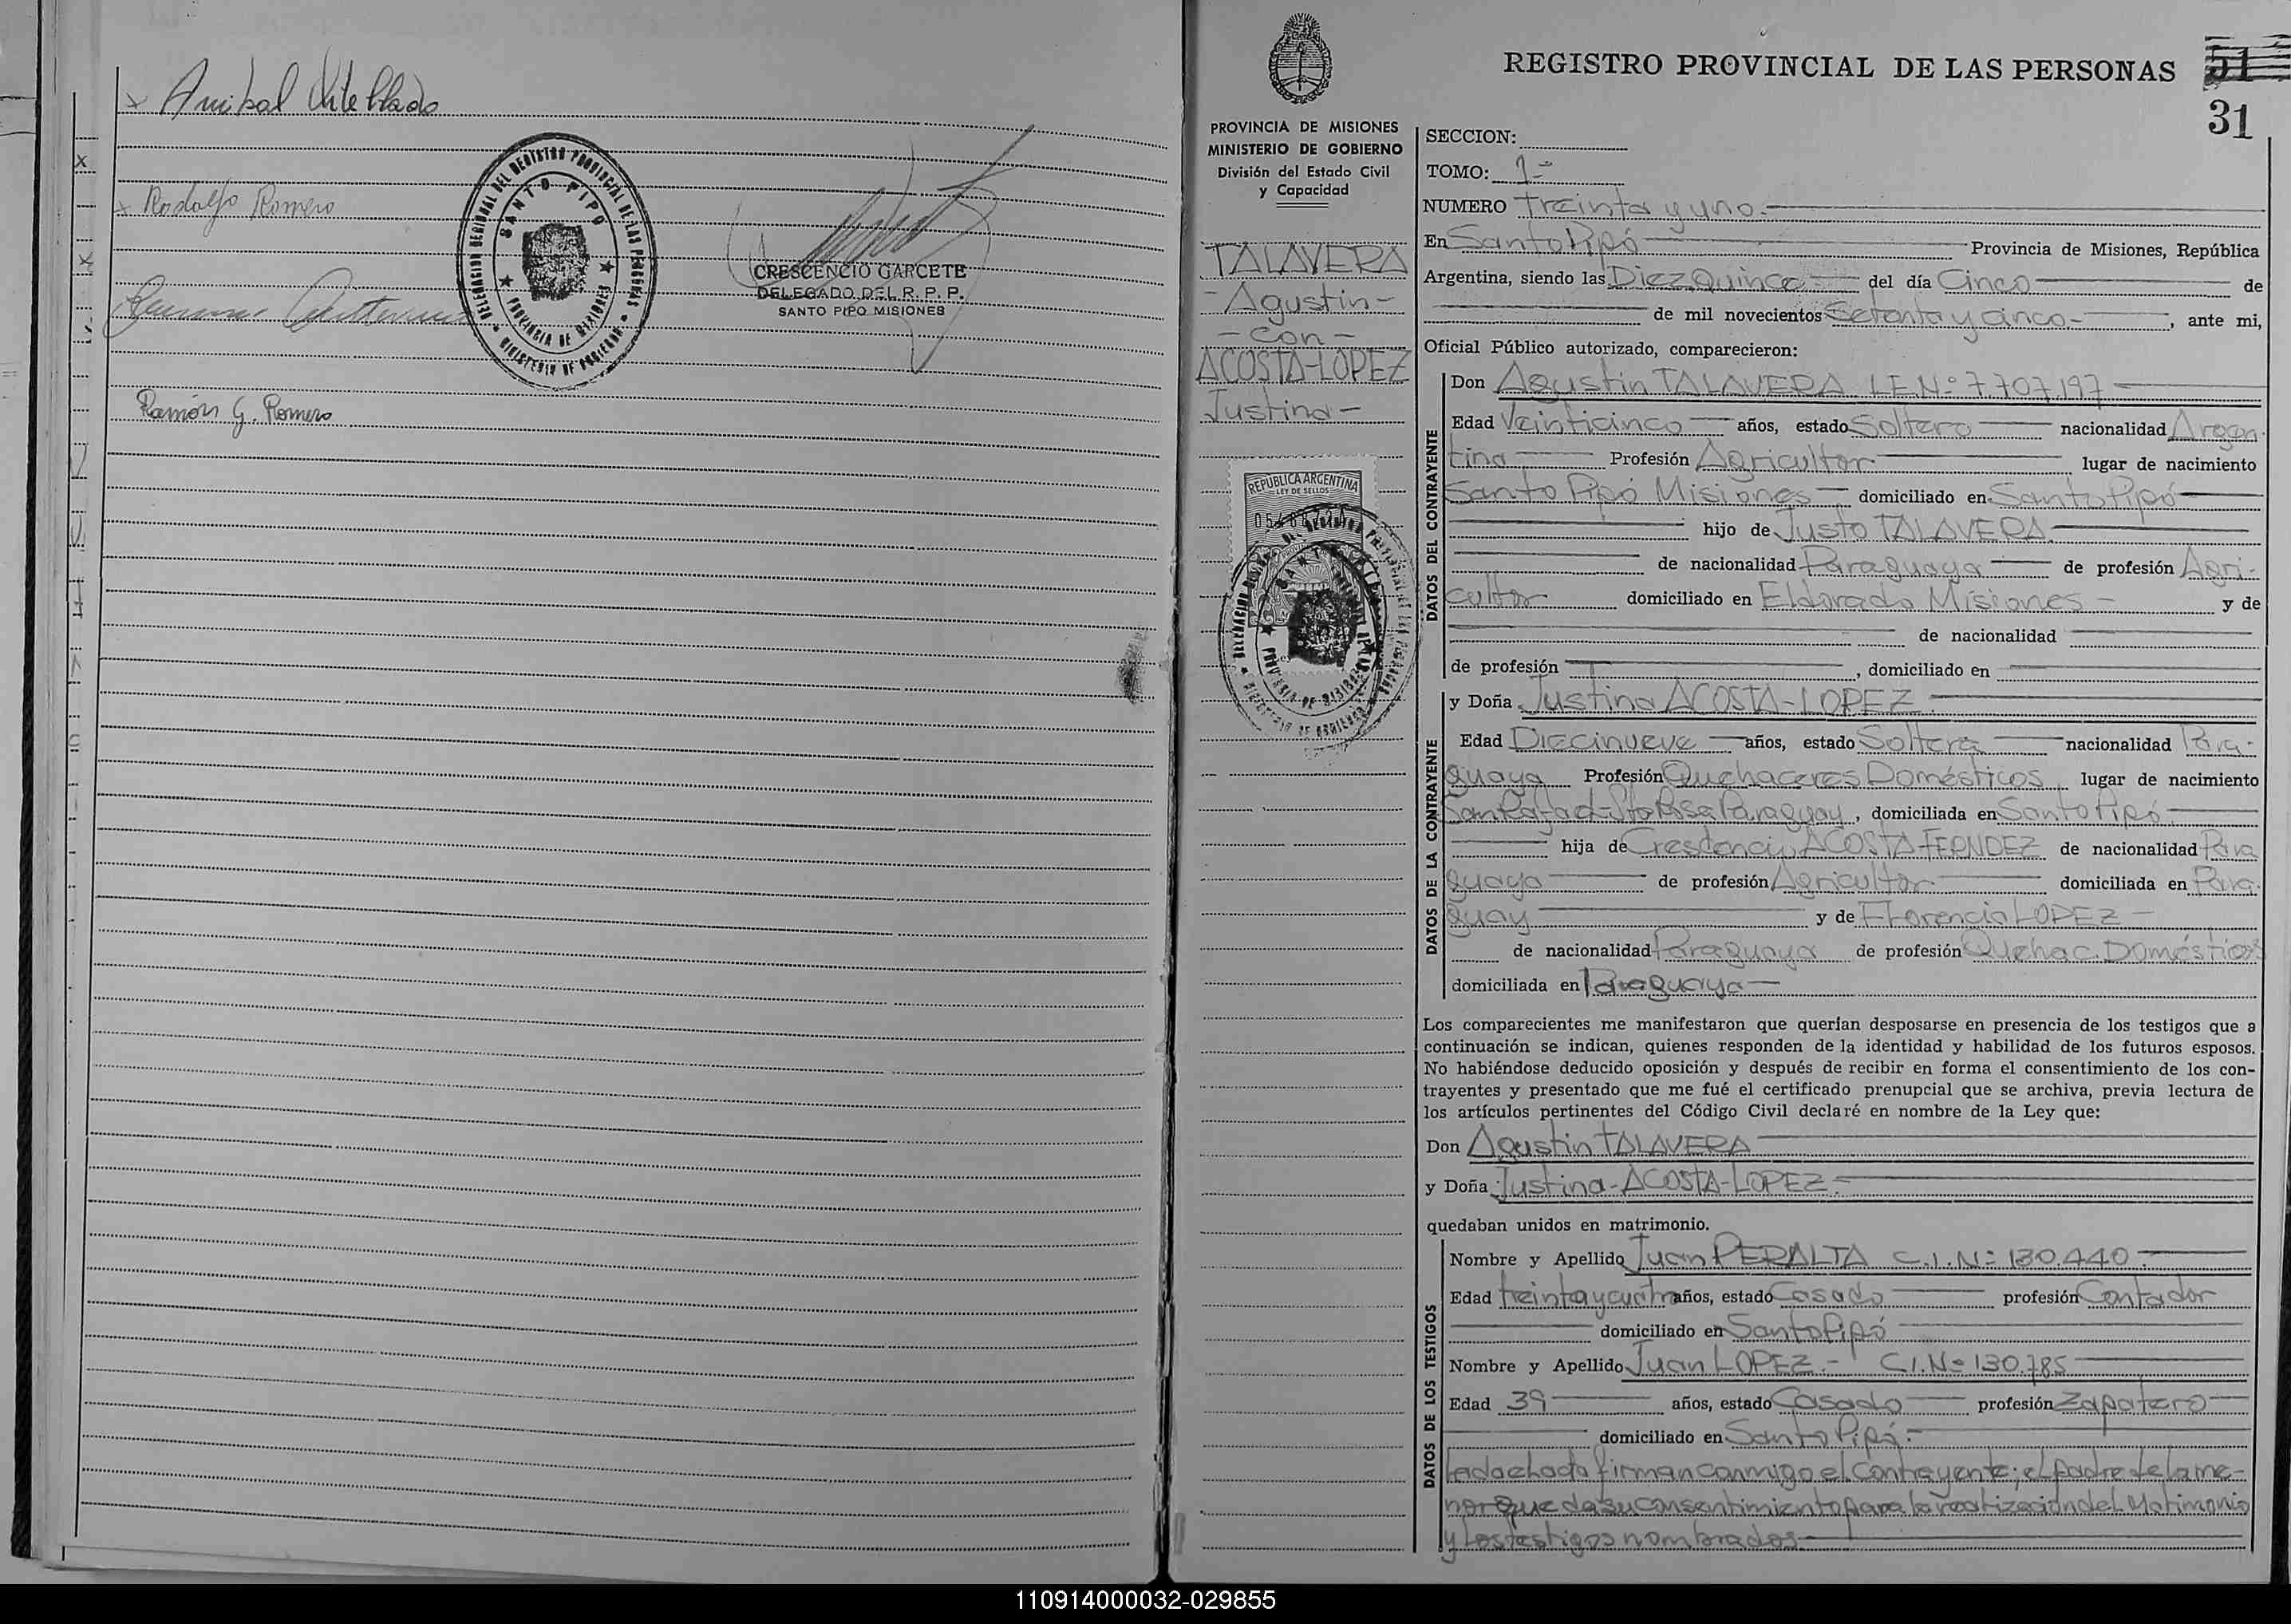 Anibal
Rodolfo Romero
DELEGACION REGIONAL DEL REGISTRO PROVINCIAL DE LAS PERSONAS
SANTO PIPO
PROVINCIA DE MISIONES
MINISTERIO DE GOBIERNO
CRESCENCIO GARCETE
DELEGADO DEL R. P. P.
SANTO PIPO MISIONES
Ramón G. Romero
REGISTRO PROVINCIAL DE LAS PERSONAS
51
31
PROVINCIA DE MISIONES
MINISTERIO DE GOBIERNO
División del Estado Civil
y Capacidad
TALAVERA
- Agustin -
- con -
ACOSTA-LOPEZ
Justina -
REPUBLICA ARGENTINA
LEY DE SELLOS
SECCION:
TOMO: 1=
NUMERO Treinta y uno.
En Santo Pipó Provincia de Misiones, República
Argentina, siendo las Diez Quince del día Cinco de
de mil novecientos Setenta y cinco - , ante mi,
Oficial Público autorizado, comparecieron:
DATOS DEL CONTRAYENTE
Don Agustin TALAVERA L.E.Nº 7.707.197
Edad Veinticinco años, estado Soltero nacionalidad Argen-
tina Profesión Agricultor lugar de nacimiento
Santo Pipó Misiones domiciliado en Santo Pipó
hijo de Justo TALAVERA
de nacionalidad Paraguaya de profesión Agri-
cultor domiciliado en Eldorado Misiones - y de
de nacionalidad
de profesión , domiciliado en
DATOS DE LA CONTRAYENTE
y Doña Justina ACOSTA-LOPEZ.
Edad Diecinueve años, estado Soltera nacionalidad Para-
guaya Profesión Quehaceres Domésticos lugar de nacimiento
San Rafael-Sta Rosa Paraguay, domiciliada en Santo Pipó
hija de Crescencio ACOSTA-FERNDEZ de nacionalidad Para
guaya de profesión Agricultor domiciliada en Para-
guay y de Florencia LOPEZ -
de nacionalidad Paraguaya de profesión Quehac. Domésticos
domiciliada en Paraguaya
Los comparecientes me manifestaron que querían desposarse en presencia de los testigos que a
continuación se indican, quienes responden de la identidad y habilidad de los futuros esposos.
No habiéndose deducido oposición y después de recibir en forma el consentimiento de los con-
trayentes y presentado que me fué el certificado prenupcial que se archiva, previa lectura de
los artículos pertinentes del Código Civil declaré en nombre de la Ley que:
Don Agustin TALAVERA
y Doña Justina-ACOSTA-LOPEZ.
quedaban unidos en matrimonio.
DATOS DE LOS TESTIGOS
Nombre y Apellido Juan PERALTA C.I.Nº 130.440.
Edad treinta y cuatro años, estado Casado profesión Contador
domiciliado en Santo Pipó
Nombre y Apellido Juan LOPEZ.- C.I.Nº 130.785
Edad 39 años, estado Casado profesión Zapatero
domiciliado en Santo Pipó.-
Leda el acta firman conmigo el contrayente; el padre de la me-
nor que da su consentimiento para la realización del Matrimonio
y Los testigos nombrados.
110914000032-029855